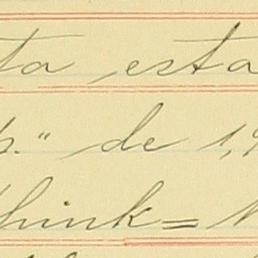 ta esta
p." de 1,9
think= M